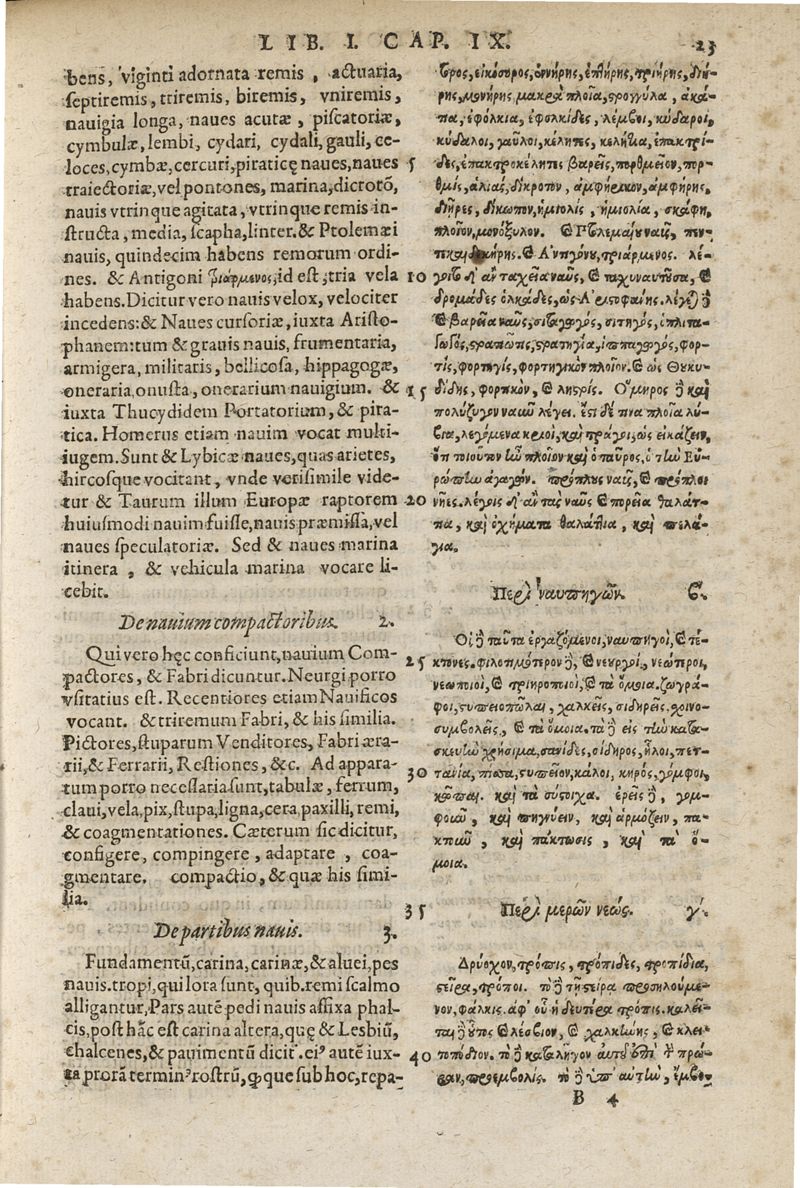 LIB. I. CAP. IX. 23
bens, viginti adornata remis, actuaria,
septiremis, triremis, biremis, vniremis,
nauigia longa, naues acutæ, piscatoriæ,
cymbulæ, lembi, cydari, cydali, gauli, ce-
loces, cymbæ, cercuri, piraticę naues, naues
traiectoriæ, vel pontones, marina, dicrotō,
nauis vtrinque agitata, vtrinque remis in-
structa, media, scapha, linter. & Ptolemæi
nauis, quindecim habens remorum ordi-
nes. & Antigoni τριάρμενος, id est, tria vela
habens. Dicitur vero nauis velox, velociter
incedens: & Naues cursoriæ, iuxta Aristo-
phanem: tum & grauis nauis, frumentaria,
armigera, militaris, bellicosa, hippagogæ,
oneraria, onusta, onerarium nauigium. &
iuxta Thucydidem Portatorium, & pira-
tica. Homerus etiam nauim vocat multi-
iugem. Sunt & Lybicæ naues, quas arietes,
hircosque vocitant, vnde verisimile vide-
tur & Taurum illum Europæ raptorem
huiusmodi nauim fuisse, nauis præmissa, vel
naues speculatoriæ. Sed & naues marina
itinera, & vehicula marina vocare li-
cebit.
De nauium compactoribus. 2.
Qui vero hęc conficiunt, nauium Com-
pactores, & Fabri dicuntur. Neurgi porro
vsitatius est. Recentiores etiam Nauificos
vocant. & triremum Fabri, & his similia.
Pictores, stuparum Venditores, Fabri æra-
rii, & Ferrarii, Restiones, &c. Ad appara-
tum porro necessaria sunt, tabulæ, ferrum,
claui, vela, pix, stupa, ligna, cera, paxilli, remi,
& coagmentationes. Cæterum sic dicitur,
configere, compingere, adaptare, coa-
gmentare. compactio, & quæ his simi-
lia.
De partibus nauis. 3.
Fundamentū, carina, carinæ, & aluei, pes
nauis. tropi, qui lora sunt, quib. remi scalmo
alligantur, Pars autē pedi nauis affixa phal-
cis, post hāc est carina altera, quę & Lesbiū,
chalcenes, & pauimentū dicit᷒. ei⁹ autē iux-
ta prorā termin⁹ rostrū, ꝙque sub hoc, repa-
5
10
15
20
25
30
35
40
ορος, εἰκόσορος, ὀννήρης, ἑπτήρης, τριήρης, διή-
ρης, μονήρης, μακρὰ πλοῖα, στρογγύλα, ἀκά-
τια, ἐφόλκια, ἐφολκίδες, λέμβοι, κύδαροι,
κύδαλοι, γαῦλοι, κέλητες, κελήτια, ἐπακτρί-
δες, ἐπακτροκέλητες βαρεῖς, πορθμεῖον, πορ-
θμὶς, ἁλιὰς, δίκροτον, ἀμφηρικὸν, ἀμφήρης,
διῆρες, δίκωπον, ἡμιολὶς, ἡμιολία, σκάφη,
πλοῖον, μονόξυλον. καὶ Πτολεμαίου ναῦς, πεν-
τεκαιδεκήρης. καὶ Ἀντιγόνου, τριάρμενος. λέ-
γοιτο δ' ἂν ταχεῖα ναῦς, καὶ ταχυναυτοῦσα, καὶ
δρομάδες ὁλκάδες, ὡς Ἀριστοφάνης. λέγεται δὲ
καὶ βαρεῖα ναῦς, σιταγωγὸς, σιτηγὸς, ὁπλιτα-
γωγὸς, στρατιῶτις, στρατηγία, ἱππαγωγὸς, φορ-
τὶς, φορτηγὶς, φορτηγικὸν πλοῖον. καὶ ὡς Θουκυ-
δίδης, φορτικὸν, καὶ λῃστρίς. Ὅμηρος δὲ καὶ
πολύζυγον ναῦν λέγει. ἔστι δέ τινα πλοῖα λύ-
βια, λεγόμενα κριοὶ, καὶ τράγοι, ὡς εἰκάζειν,
ὅτι τοιοῦτον ἦν πλοῖον καὶ ὁ ταῦρος, ὁ τὴν Εὐ-
ρώπην ἀγαγών. πρόπλους ναῦς, καὶ πρόπλοι
νῆες. λέγοις δ' ἂν τὰς ναῦς καὶ πορεῖα θαλάτ-
τια, καὶ ὀχήματα θαλάττια, καὶ πελά-
για.
Περὶ ναυπηγῶν. ϛ'.
Οἱ δὲ ταῦτα ἐργαζόμενοι, ναυπηγοὶ, καὶ τέ-
κτονες. φιλοτιμότερον δὲ, καὶ νεουργοί, νεώτεροι,
νεωποιοὶ, καὶ τριηροποιοὶ, καὶ τὰ ὅμοια. ζωγρά-
φοι, στυππειοπῶλαι, χαλκεῖς, σιδηρεῖς. σχοινο-
συμβολεῖς, καὶ τὰ ὅμοια. τὰ δὲ εἰς τὴν κατα-
σκευὴν χρήσιμα, σανίδες, σίδηρος, ἧλοι, πετ-
τανία, πίττα, στυππεῖον, κάλοι, κηρὸς, γόμφοι,
κῶπαι. καὶ τὰ σύστοιχα. ἐρεῖς δὲ, γομ-
φοιοῦν, καὶ πηγνύειν, καὶ ἁρμόζειν, πα-
κτοιοῦν, καὶ πάκτωσις, καὶ τὰ ὅ-
μοια.
Περὶ μερῶν νεώς. γ'.
Δρύοχον, τρόπις, τρόπιδες, τροπίδια,
στεῖρα, τρόποι. τὸ δὲ τῇ στείρᾳ προσηλούμε-
νον, φάλκις. ἀφ' οὗ ἡ δευτέρα τρόπις. καλεῖ-
ται δ' οὗτος καὶ λέσβιον, καὶ χαλκήνης, καὶ κλει-
τοπόδιον. τὸ δὲ καταλῆγον αὐτοῦ ἐπὶ τὴν πρώ-
ραν, προεμβολίς. τὸ δὲ ὑπ' αὐτὴν, ἔμβο-
B 4